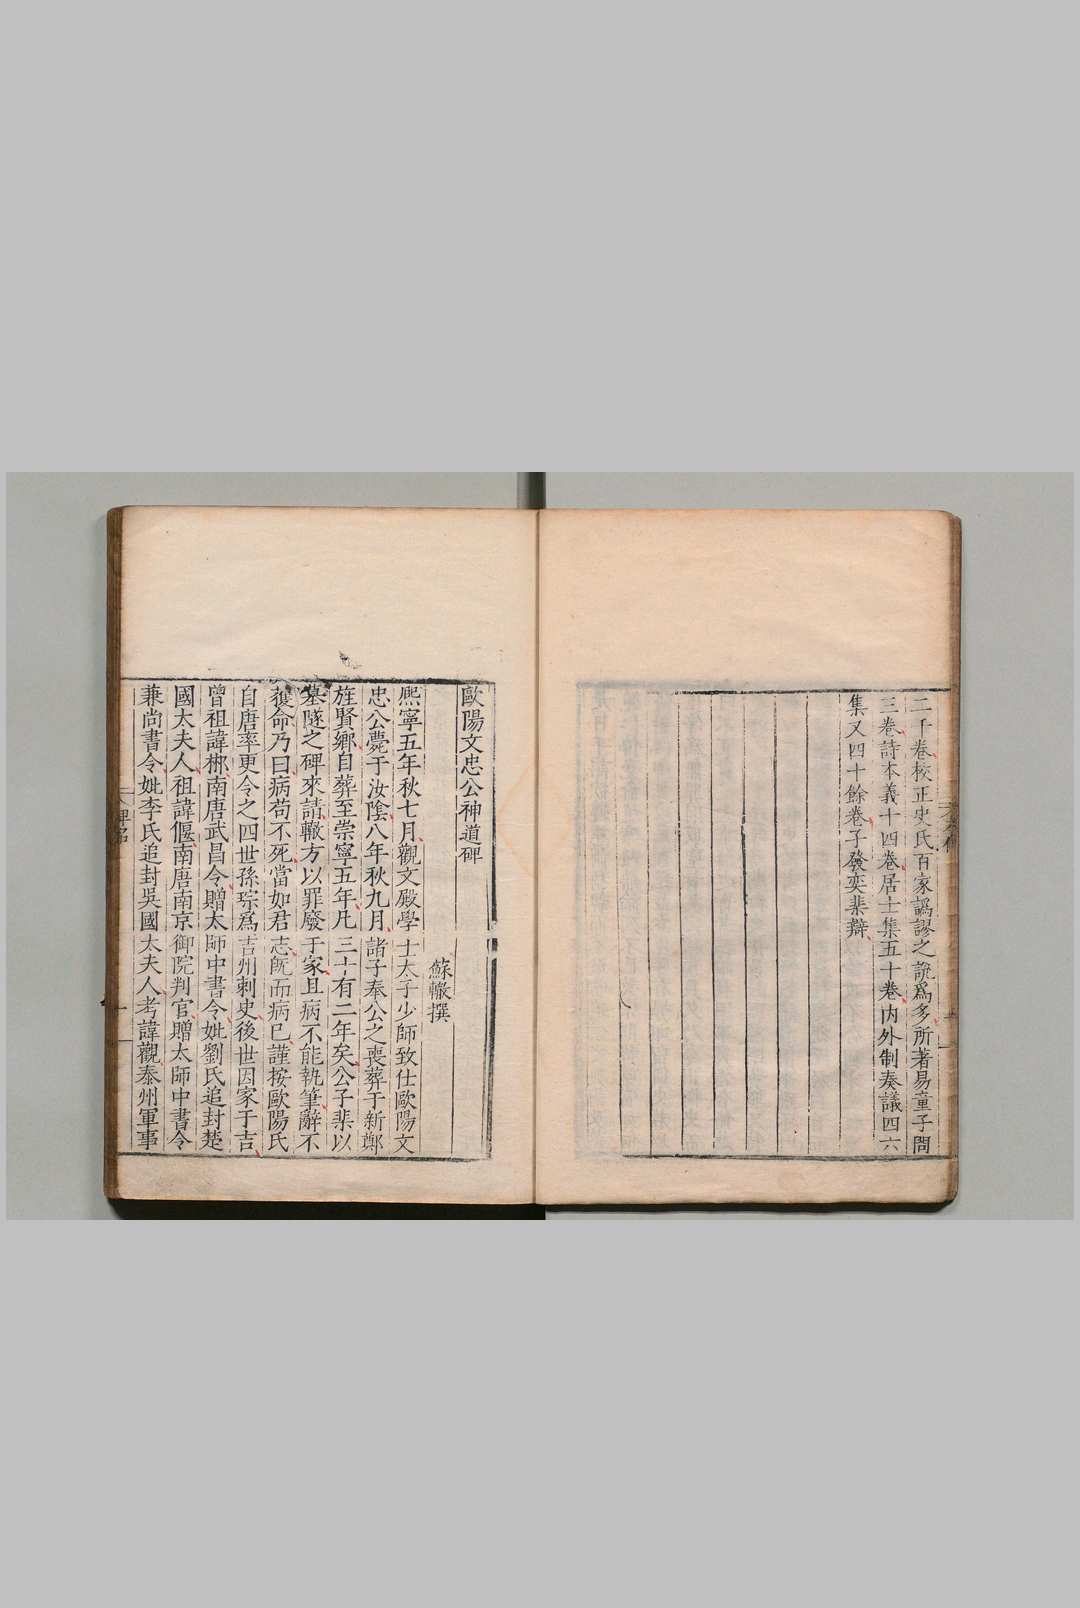 二千卷校正史氏百家譌謬之説爲多所著易童子問
三卷詩本義十四卷居士集五十卷内外制奏議四六
集又四十餘卷子發奕棐辯
歐陽文忠公神道碑
蘇轍撰
熈寧五年秋七月觀文殿學士太子少師致仕歐陽文
忠公薨于汝陰八年秋九月諸子奉公之喪葬于新鄭
旌賢鄉自葬至崇寧五年凡三十有二年矣公子棐以
墓隧之碑來請轍方以罪廢于家且病不能執筆辭不
獲命乃曰病苟不死當如君志旣而病已謹按歐陽氏
自唐率更令之四世孫琮爲吉州刺史後世因家于吉
曾祖諱郴南唐武昌令贈太師中書令妣劉氏追封楚
國太夫人祖諱偃南唐南京御院判官贈太師中書令
兼尚書令妣李氏追封吳國太夫人考諱觀泰州軍事